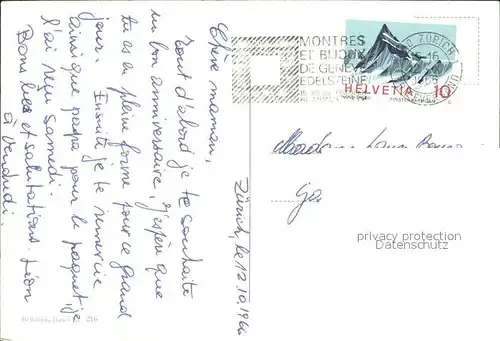 Zürich, le 12.10.1966
Chère maman,
Tout d'abord je te souhaite
un bon anniversaire, j'espère que
tu es en pleine forme pour ce grand
jour. Ensuite je te remercie
ainsi que papa pour le paquet, je
l'ai reçu samedi.
Bons becs et salutations. Léon
à Vendredi.
MONTRES
ET BIJOUX
DE GENÈVE
EDELSTEINE
ZÜRICH
HELVETIA 10
Madame
privacy protection
Datenschutz
216